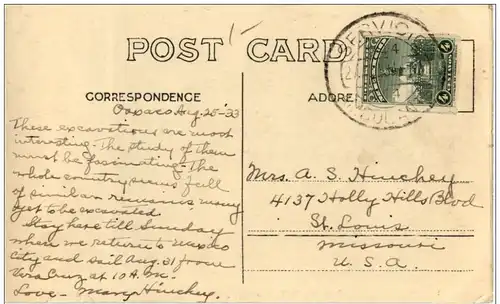 POST CARD
SERVICIO
CORRESPONDENCE
ADDRE
Oaxaca Aug. 25-33
These excavations are most
interesting. The study of them
must be fascinating. The
whole country seems full
of similar remains many
yet to be excavated
Stay here till Sunday
when we return to Mexico
City and sail Aug. 31 from
Vera Cruz at 10 A.M.
Love - Mary Hinchey.
Mrs. A. S. Hinchey
4137 Holly Hills Blvd
St. Louis
Missouri
U. S. A.